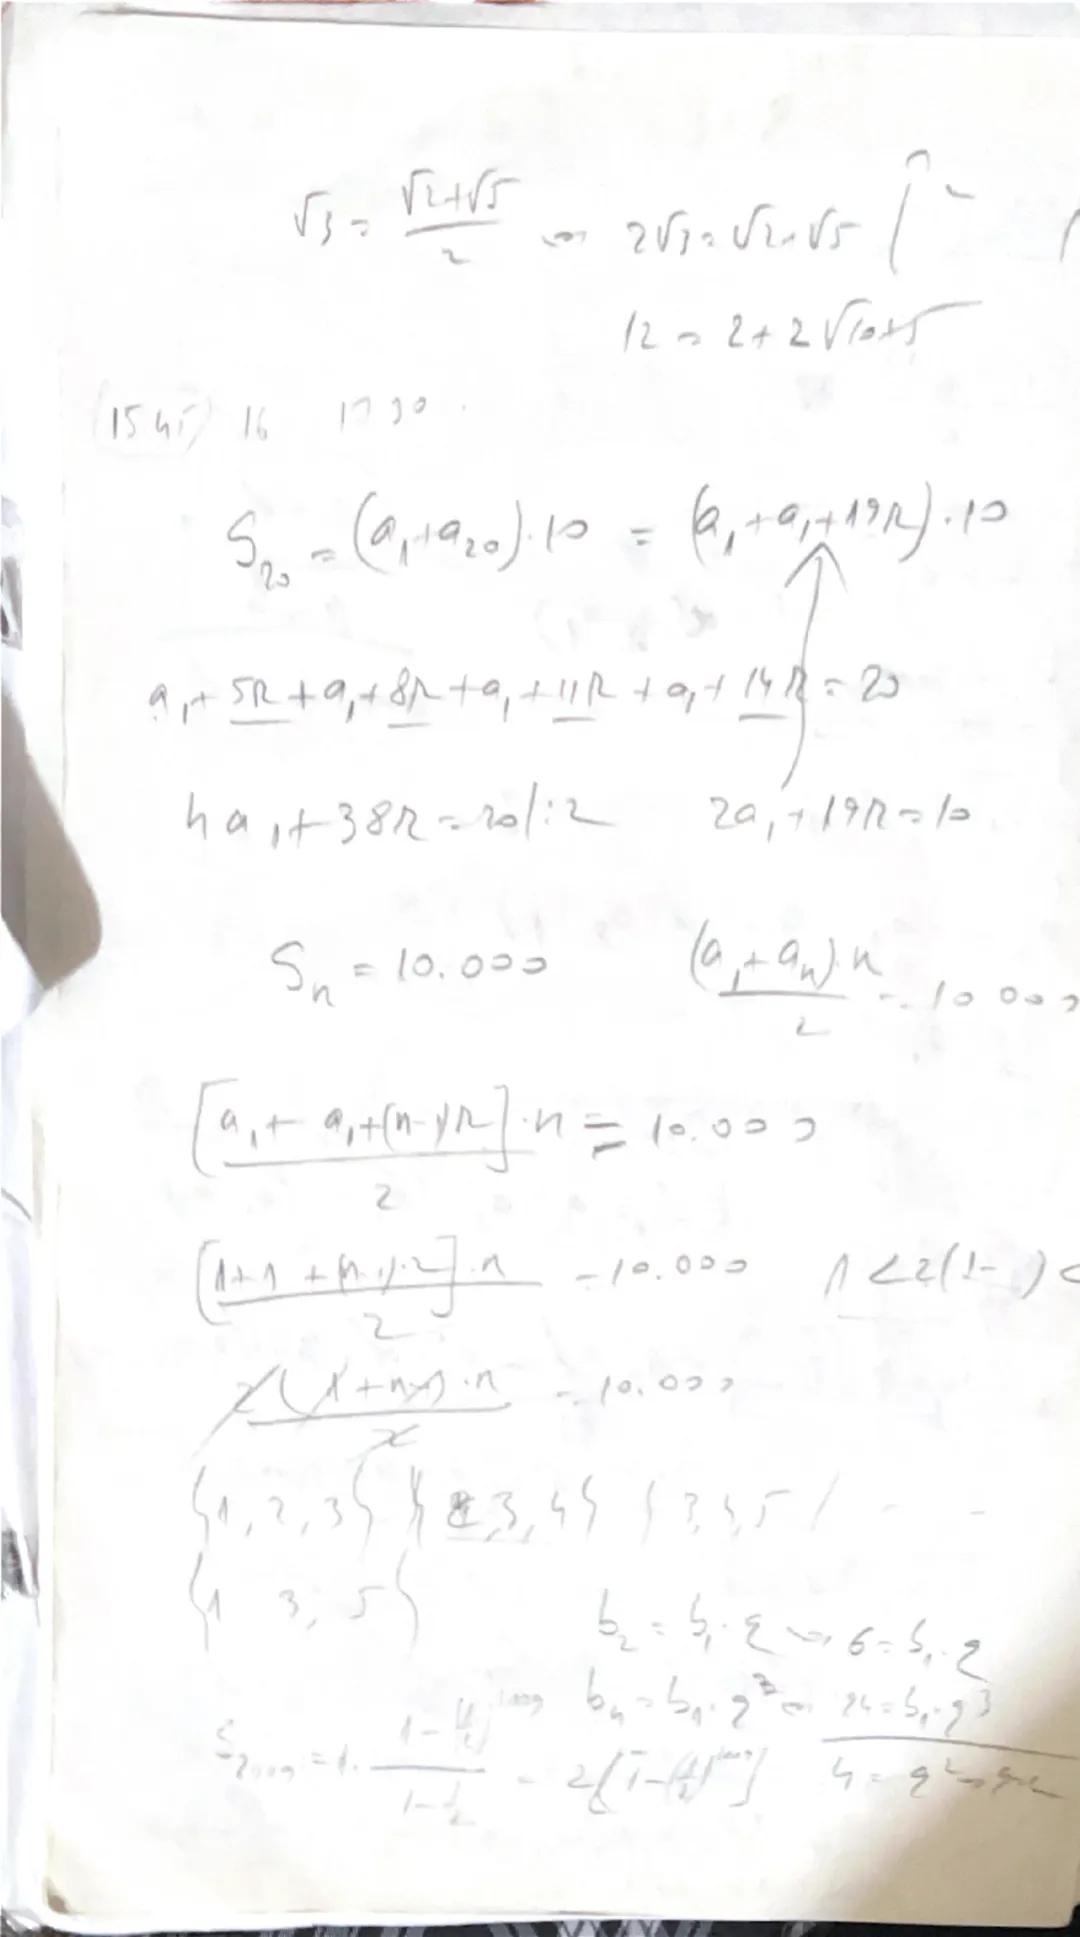 √3 = (√2+√5)/2 => 2√3 = √2+√5 |²
12 = 2 + 2√10+5
(15 45) 16 17 30.
S₂₀ = (a₁+a₂₀)·10 = (a₁+a₁+19r)·10
a₁+5r+a₁+8r+a₁+11r+a₁+14r=20
4a₁+38r=20/:2 2a₁+19r=10
Sₙ = 10.000 (a₁+aₙ)·n/2 = 10 000
[a₁+a₁+(n-1)r]·n/2 = 10.000
[1+1+(n-1)·2]·n/2 = 10.000 1<2(1- )<
2(1+n-1)·n/2 = 10.000
{1,2,3} {2,3,4} {3,4,5} - -
{1 3, 5}
b₂ = b₁·q => 6=b₁·q
b₄=b₁·q³ => 24=b₁·q³
S₂₀₀₉ = 1· (1-(1/2)²⁰⁰⁹)/(1-1/2) = 2[1-(1/2)²⁰⁰⁹] 4=q² => q=2